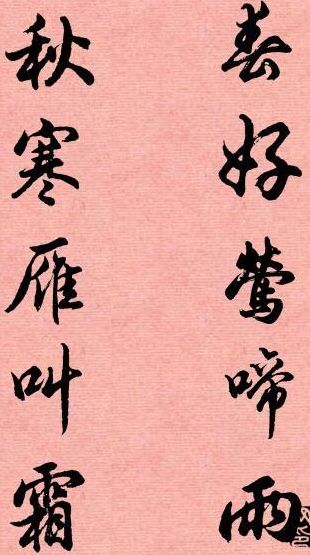 春好莺啼雨
秋寒雁叫霜